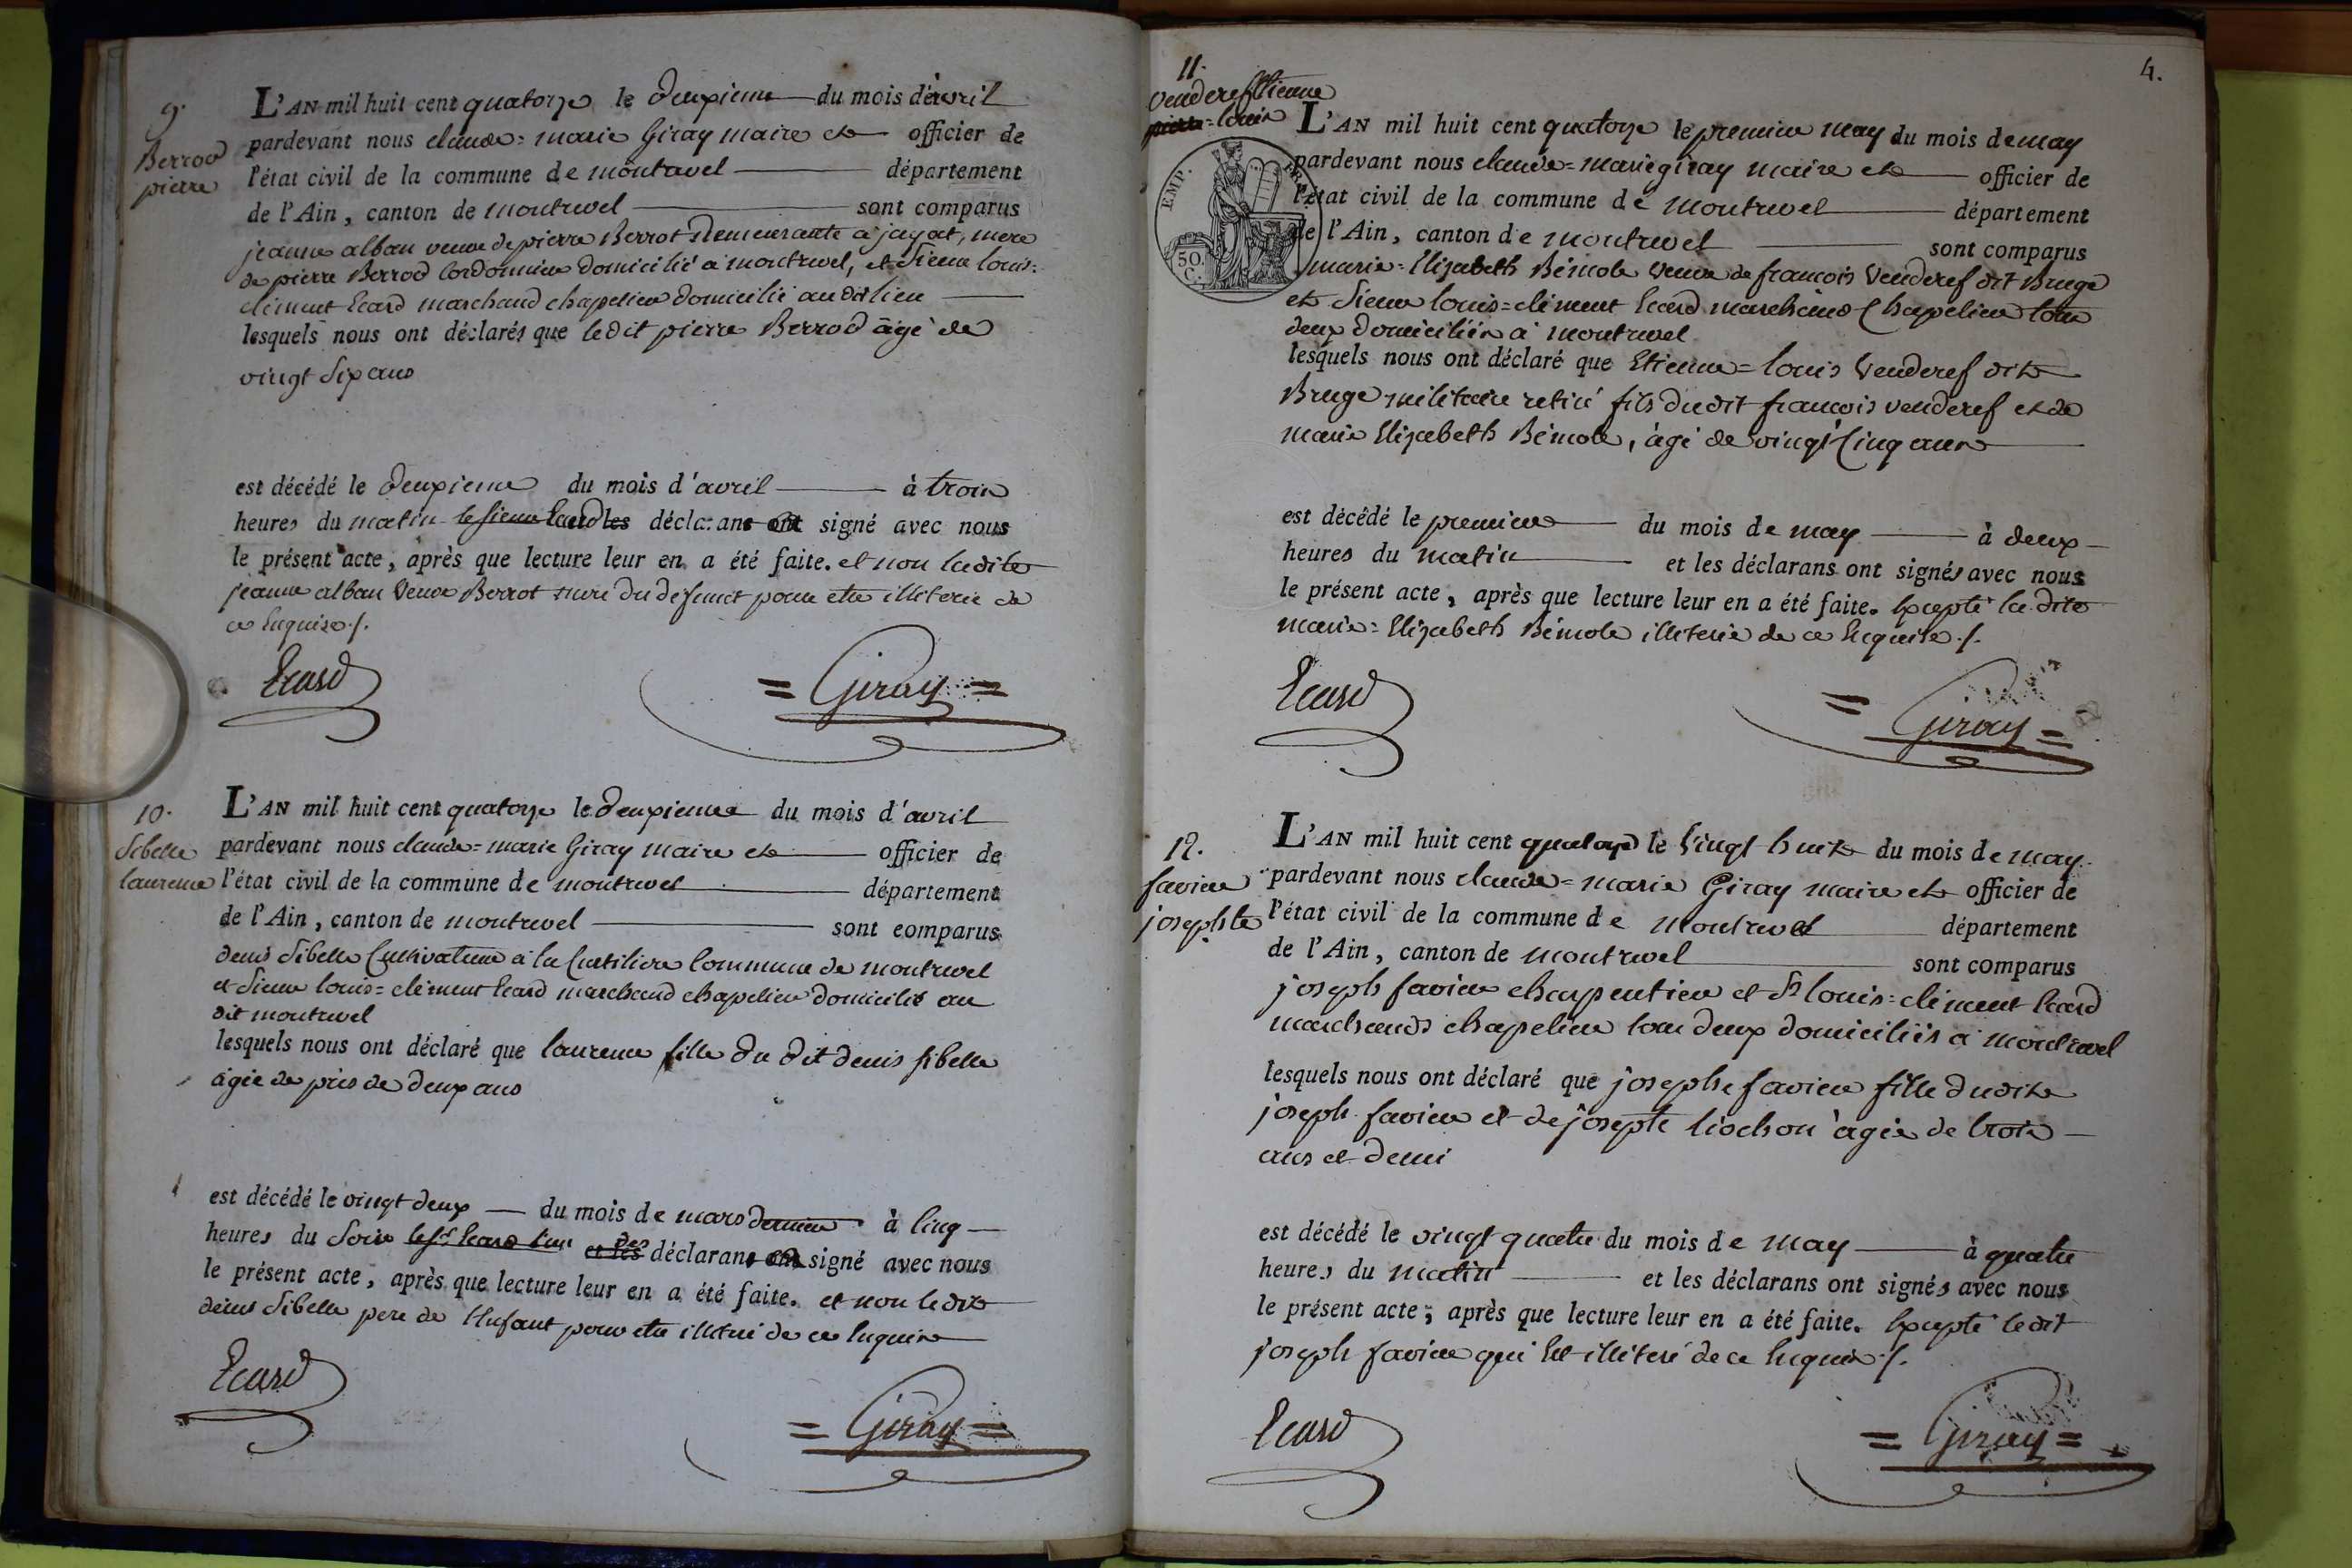 9.
Berrod
pierre
L'AN mil huit cent quatorze le deuxieme du mois d'avril
pardevant nous claude=marie Giray maire et officier de
l'état civil de la commune de montrevel département
de l'Ain, canton de montrevel sont comparus
jeanne alban veuve de pierre Berrot demeurante a jayat, mere
de pierre Berrod Cordonnier domicilié a montrevel, et Sieur louis=
clément Ecard marchand chapelier domicilié au dit lieu
lesquels nous ont déclarés que ledit pierre Berrod âgé de
vingt six ans
est décédé le deuxieme du mois d'avril à trois
heures du matin le sieur Ecard les déclarans ont signé avec nous
le présent acte, après que lecture leur en a été faite. et non ladite
jeanne alban veuve Berrot mere du defunct pour etre illiterée de
ce Enquise./.
Ecard
= Giray =
10.
Sibelle
laurence
L'AN mil huit cent quatorze le deuxieme du mois d'avril
pardevant nous claude=marie Giray maire et officier de
l'état civil de la commune de montrevel département
de l'Ain, canton de montrevel sont comparus
denis Sibelle Cultivateur a la Curtiliere Commune de montrevel
et Sieur louis=clément Ecard marchand chapelier domicilié au
dit montrevel
lesquels nous ont déclaré que laurence fille du dit denis sibelle
âgée de près de deux ans
est décédé le vingt deux du mois de mars dernier à Cinq
heures du Soir le sr Ecard l'un et les des déclarans ont signé avec nous
le présent acte, après que lecture leur en a été faite. et non ledit
denis Sibelle pere de l'Enfant pour etre illiteré de ce Enquis
Ecard
= Giray =
4.
11.
Venderef Etienne
pierre=louis
EMP.
FR
50.
C.
L'AN mil huit cent quatorze le premier may du mois de may
pardevant nous claude=marie giray maire et officier de
l'état civil de la commune de montrevel département
de l'Ain, canton de montrevel sont comparus
marie=Elizabeth Bémole Veuve de francois Venderef dit Bruge
et Sieur louis=clément Ecard marchand Chapelier tous
deux domiciliés à montrevel
lesquels nous ont déclaré que Etienne=louis Venderef dit
Bruge militaire retiré fils dudit francois venderef et de
marie Elizabeth Bémole, âgé de vingt Cinq ans
est décédé le premier du mois de may à deux
heures du matin et les déclarans ont signés avec nous
le présent acte, après que lecture leur en a été faite. Excepté la dite
marie=Elizabeth Bémole illiterée de ce Enquise./.
Ecard
= Giray =
12.
favier
josephte
L'AN mil huit cent quatorze le Vingt huit du mois de may
pardevant nous claude=marie Giray maire et officier de
l'état civil de la commune de montrevel département
de l'Ain, canton de montrevel sont comparus
joseph favier charpentier et Sr louis=clément Ecard
marchands chapelier tous deux domiciliés a montrevel
lesquels nous ont déclaré que josephe favier fille dudit
joseph favier et de josepte liochon âgée de trois
ans et demi
est décédé le vingt quatre du mois de may à quatre
heures du matin et les déclarans ont signés avec nous
le présent acte; après que lecture leur en a été faite. Excepté ledit
joseph favier qui Est illiteré de ce Enquis./.
Ecard
= Giray =